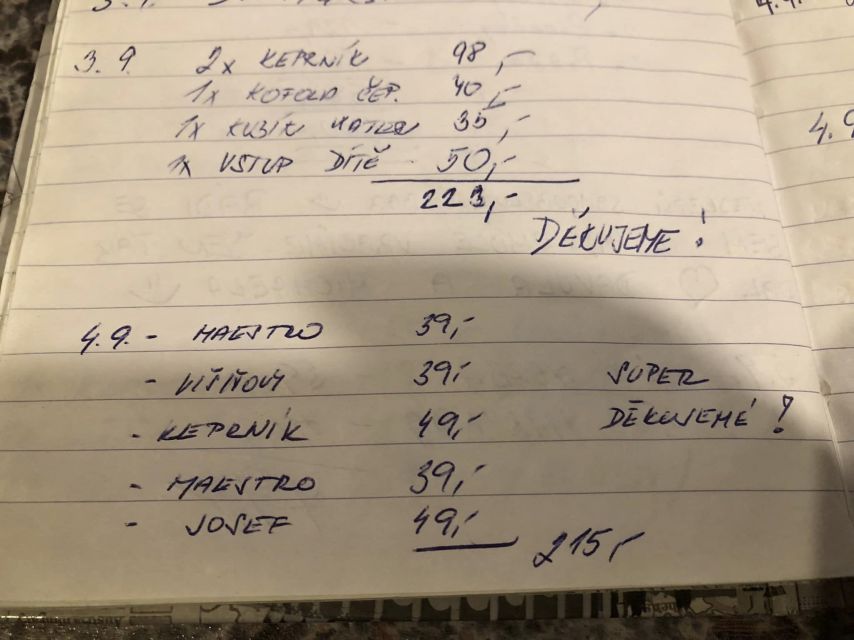 3.9. 2x KEPRNÍK 98,-
1x KOFOLA ČEP. 40,-
1x KUBÍK 35,-
1x VSTUP DÍTĚ 50,-
223,-
DĚKUJEME!
4.9. - MAESTRO 39,-
- VIŠŇOVÝ 39,- SUPER
- KEPRNÍK 49,- DĚKUJEMÉ!
- MAESTRO 39,-
- JOSEF 49,-
215,-
4.9